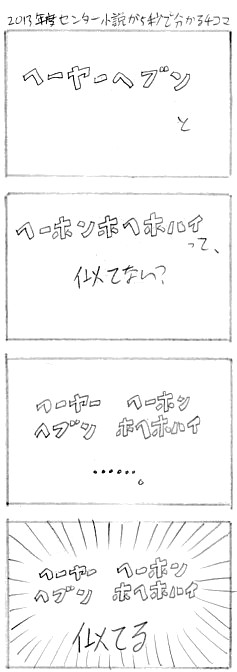 2013年度センター小説が5秒で分かる4コマ
ヘーヤーヘブン
と
ヘーホンホヘホハイ
って、
似てない?
ヘーヤー ヘーホン
ヘブン ホヘホハイ
……。
ヘーヤー ヘーホン
ヘブン ホヘホハイ
似てる